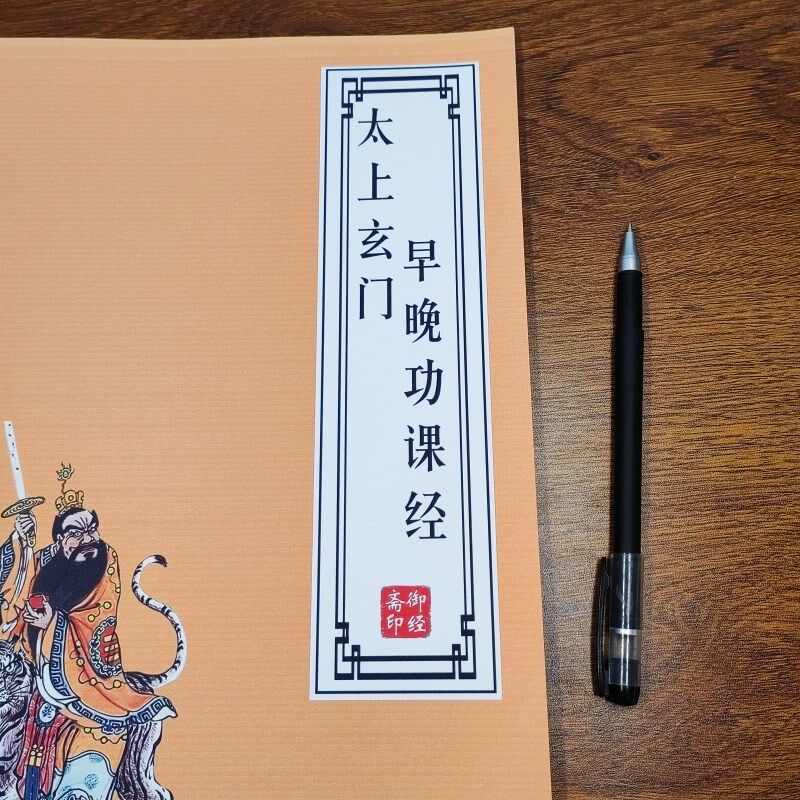 太上玄门
早晚功课经
御经
斋印